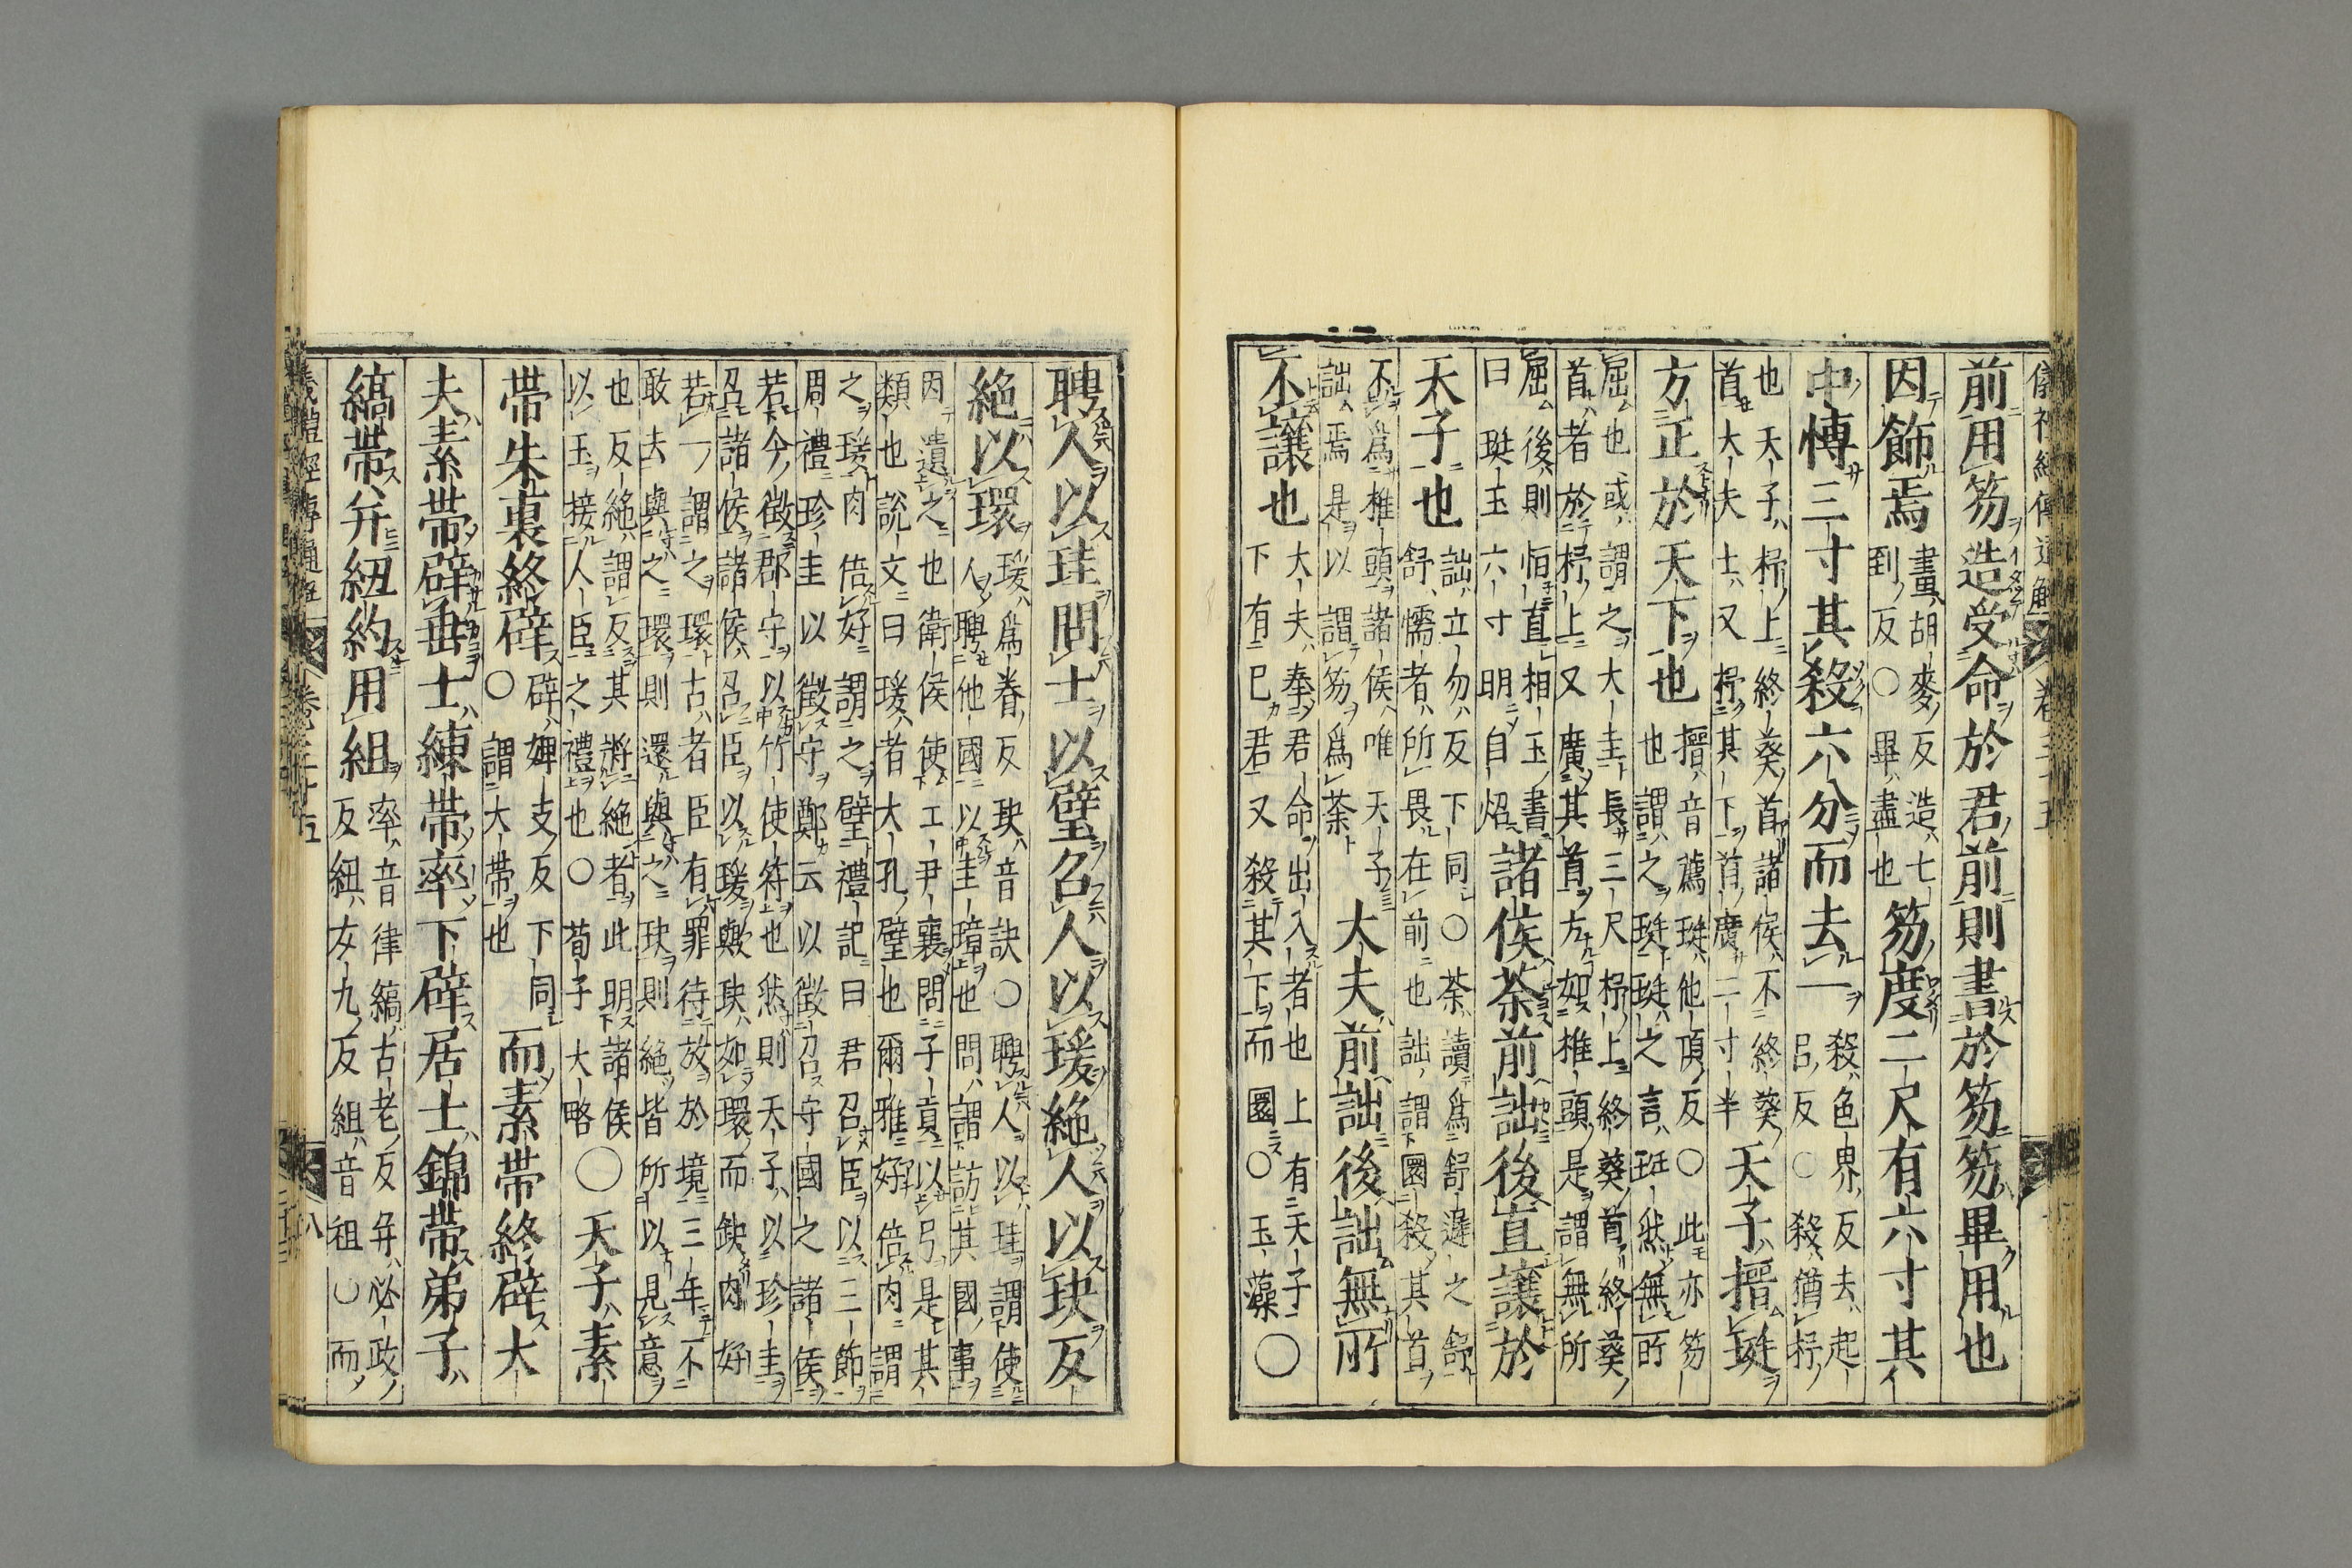 前用笏造受命於君前則書於笏笏畢用也
因飾焉 畫胡麥反造七
到反○畢盡也 笏度二尺有六寸其
中博三寸其殺六分而去一 殺色界反去起
呂反○殺猶杼
也天子杼上終葵首諸侯不終葵
首大夫士又杼其下首廣二寸半 天子搢珽
方正於天下也 搢音薦珽他頂反○此亦笏
也謂之珽珽之言珽然無所
屈也或謂之大圭長三尺杼上終葵首終葵
首者於杼上又廣其首方如椎頭是謂無所
屈後則恒直相玉書
曰珽玉六寸明自炤 諸侯荼前詘後直讓於
天子也 詘立勿反下同○荼讀爲舒遲之舒
舒懦者所畏在前也詘謂圜殺其首
不爲椎頭諸侯唯天子
詘焉是以謂笏爲荼 大夫前詘後詘無所
不讓也 大夫奉君命出入者也上有天子
下有己君又殺其下而圜○玉藻 ○
聘人以珪問士以璧召人以瑗絶人以玦反
絶以環 瑗爲眷反玦音訣○聘人以珪謂使
人聘他國以圭璋也問謂訪其國事
因遺之也衛侯使工尹襄問子貢以弓是其
類也説文曰瑗者大孔璧也爾雅好倍肉謂
之瑗肉倍好謂之璧禮記曰君召臣以三節
周禮珍圭以徵守鄭云以徵召守國之諸侯
若今徵郡守以竹使符也然則天子以珍圭
召諸侯諸侯召臣以瑗歟玦如環而缺肉好
若一謂之環古者臣有罪待放於境三年不
敢去與之環則還與之玦則絶皆所以見意
也反絶謂反其將絶者此明諸侯
以玉接人臣之禮也○荀子大略 ○天子素
帶朱裏終辟 辟婢支反下同
○謂大帶也 而素帶終辟大
夫素帶辟垂士練帶率下辟居士錦帶弟子
縞帶并紐約用組 率音律縞古老反并必政
反紐女九反組音祖○而